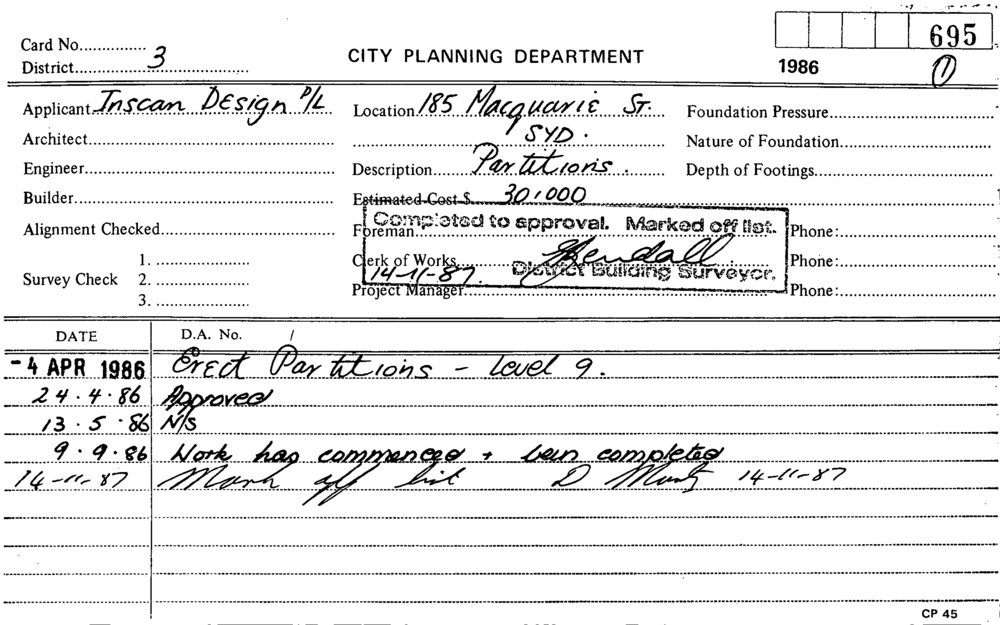 Card No.
695
District 3
CITY PLANNING DEPARTMENT
1986
1
Applicant Inscan Design P/L
Location 185 Macquarie St.
Foundation Pressure
Architect
SYD.
Nature of Foundation
Engineer
Description Partitions.
Depth of Footings
Builder
Estimated Cost $ 30,000
Completed to approval. Marked off list.
Alignment Checked
Foreman
Phone:
Survey Check
1.
2.
3.
Clerk of Works
Phone:
14-11-87.
District Building Surveyor.
Project Manager
Phone:
DATE D.A. No. /
-4 APR 1986 Erect Partitions - Level 9.
24.4.86 Approved
13.5.86 N/S
9.9.86 Work has commenced + been completed
14-11-87 Mark off list D 14-11-87
CP 45